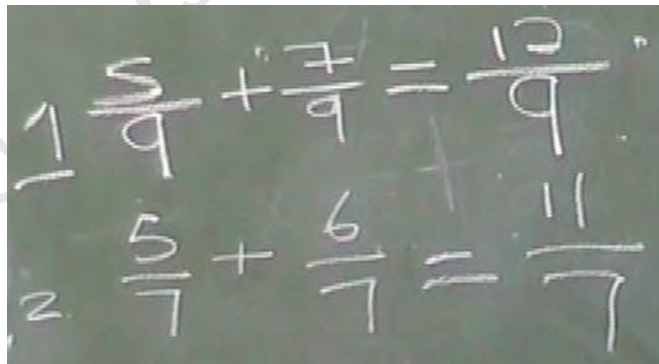 1 5/9 + 7/9 = 12/9
2. 5/7 + 6/7 = 11/7